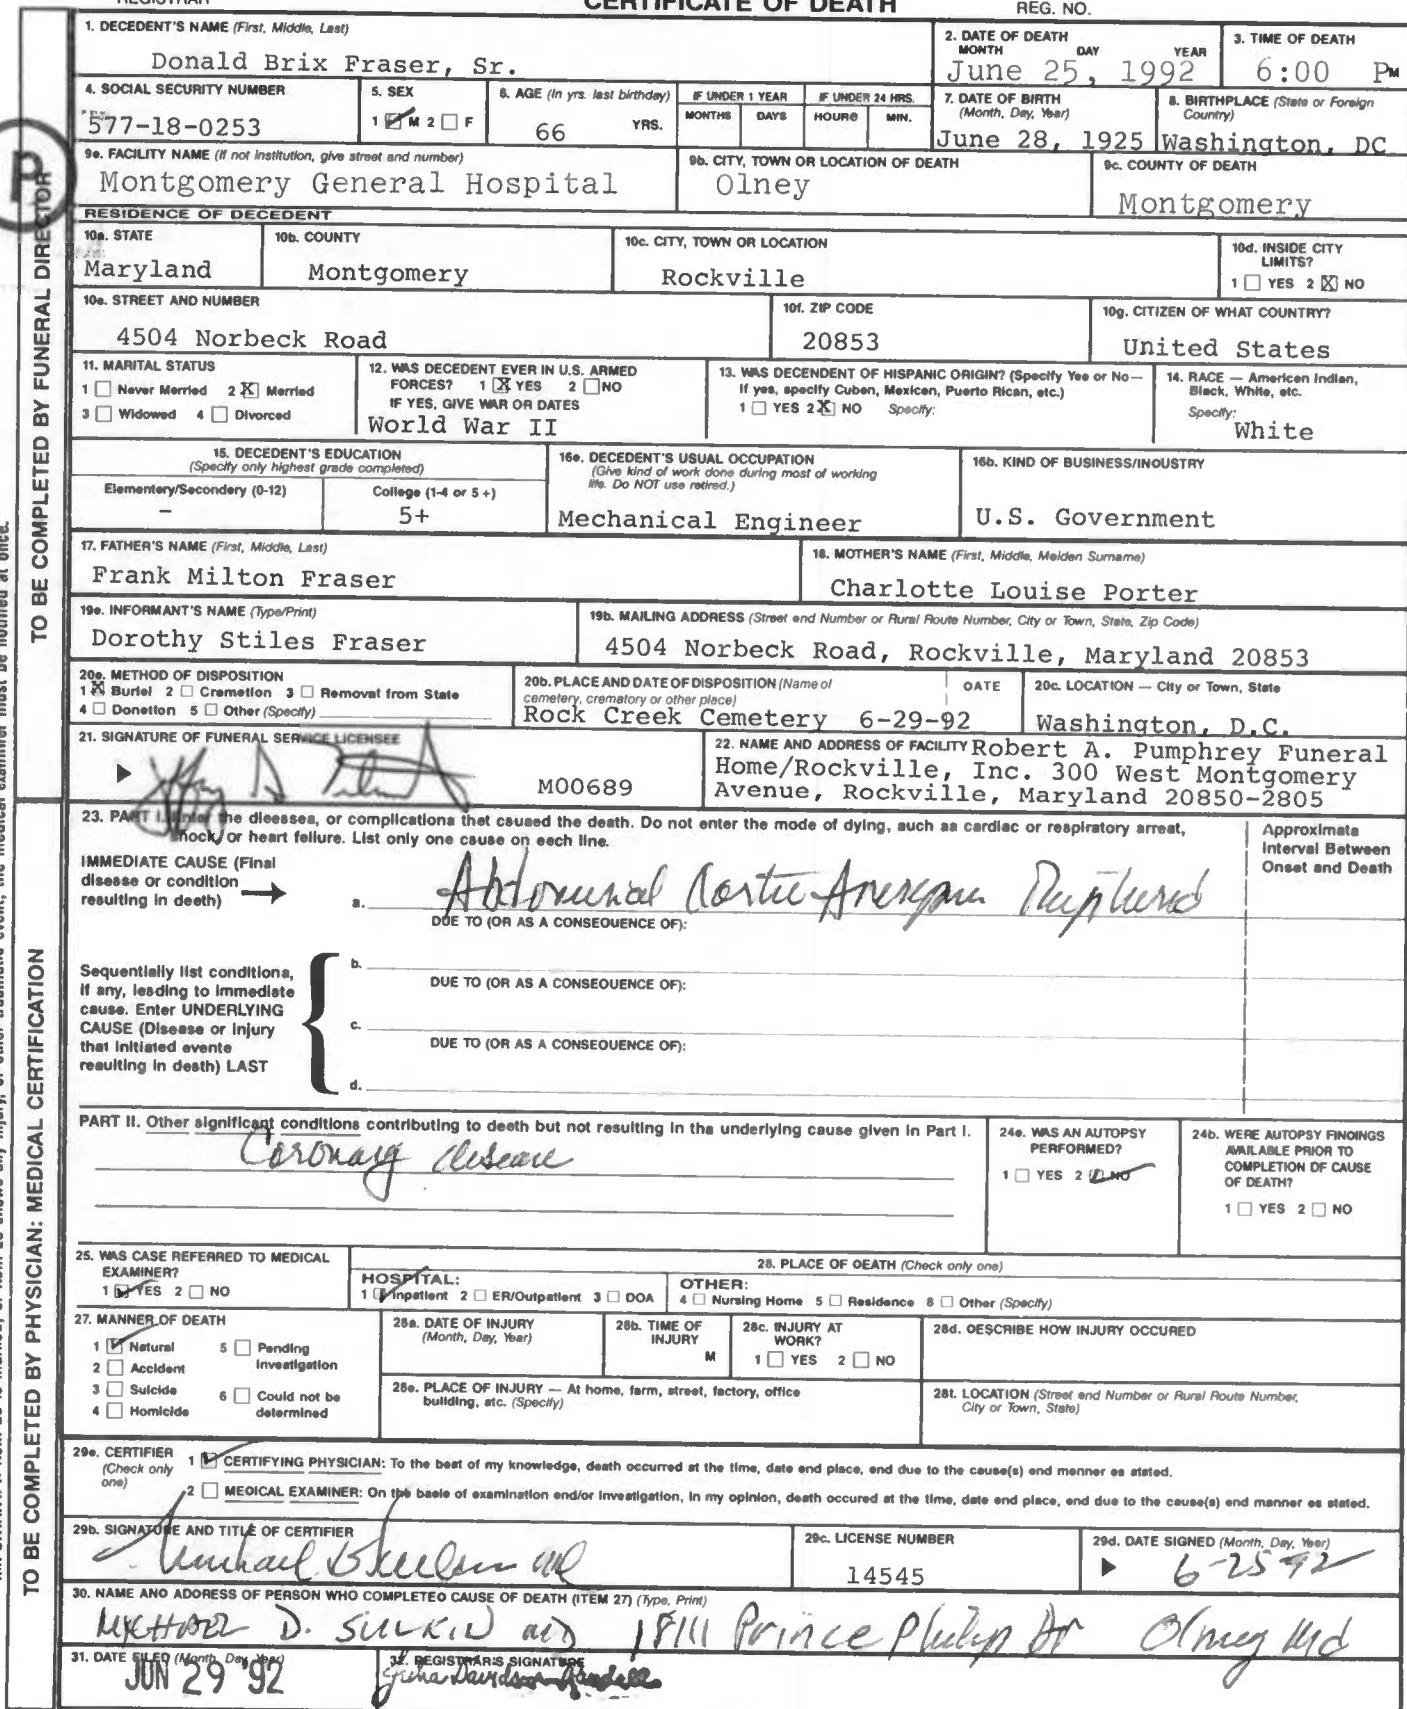 CERTIFICATE OF DEATH
REG. NO.
1. DECEDENT'S NAME (First, Middle, Last)
Donald Brix Fraser, Sr.
2. DATE OF DEATH
MONTH DAY YEAR
June 25, 1992
3. TIME OF DEATH
6:00 PM
4. SOCIAL SECURITY NUMBER
577-18-0253
5. SEX
1 M 2 F
6. AGE (In yrs. last birthday)
66 YRS.
IF UNDER 1 YEAR
MONTHS DAYS
IF UNDER 24 HRS.
HOURS MIN.
7. DATE OF BIRTH
(Month, Day, Year)
June 28, 1925
8. BIRTHPLACE (State or Foreign
Country)
Washington, DC
9a. FACILITY NAME (If not institution, give street and number)
Montgomery General Hospital
9b. CITY, TOWN OR LOCATION OF DEATH
Olney
9c. COUNTY OF DEATH
Montgomery
RESIDENCE OF DECEDENT
10a. STATE
Maryland
10b. COUNTY
Montgomery
10c. CITY, TOWN OR LOCATION
Rockville
10d. INSIDE CITY
LIMITS?
1 YES 2 X NO
10e. STREET AND NUMBER
4504 Norbeck Road
10f. ZIP CODE
20853
10g. CITIZEN OF WHAT COUNTRY?
United States
11. MARITAL STATUS
1 Never Married 2 X Married
3 Widowed 4 Divorced
12. WAS DECEDENT EVER IN U.S. ARMED
FORCES? 1 X YES 2 NO
IF YES, GIVE WAR OR DATES
World War II
13. WAS DECENDENT OF HISPANIC ORIGIN? (Specify Yes or No—
If yes, specify Cuban, Mexican, Puerto Rican, etc.)
1 YES 2 X NO Specify:
14. RACE — American Indian,
Black, White, etc.
Specify:
White
15. DECEDENT'S EDUCATION
(Specify only highest grade completed)
Elementary/Secondary (0-12)
-
College (1-4 or 5+)
5+
16a. DECEDENT'S USUAL OCCUPATION
(Give kind of work done during most of working
life. Do NOT use retired.)
Mechanical Engineer
16b. KIND OF BUSINESS/INDUSTRY
U.S. Government
17. FATHER'S NAME (First, Middle, Last)
Frank Milton Fraser
18. MOTHER'S NAME (First, Middle, Maiden Surname)
Charlotte Louise Porter
19a. INFORMANT'S NAME (Type/Print)
Dorothy Stiles Fraser
19b. MAILING ADDRESS (Street and Number or Rural Route Number, City or Town, State, Zip Code)
4504 Norbeck Road, Rockville, Maryland 20853
20a. METHOD OF DISPOSITION
1 X Burial 2 Cremation 3 Removal from State
4 Donation 5 Other (Specify)
20b. PLACE AND DATE OF DISPOSITION (Name of
cemetery, crematory or other place)
DATE
Rock Creek Cemetery 6-29-92
20c. LOCATION — City or Town, State
Washington, D.C.
21. SIGNATURE OF FUNERAL SERVICE LICENSEE
M00689
22. NAME AND ADDRESS OF FACILITY Robert A. Pumphrey Funeral
Home/Rockville, Inc. 300 West Montgomery
Avenue, Rockville, Maryland 20850-2805
23. PART I. Enter the diseases, or complications that caused the death. Do not enter the mode of dying, such as cardiac or respiratory arrest,
shock, or heart failure. List only one cause on each line.
Approximate
Interval Between
Onset and Death
IMMEDIATE CAUSE (Final
disease or condition
resulting in death)
a. Abdominal Aortic Aneurysm Ruptured
DUE TO (OR AS A CONSEQUENCE OF):
Sequentially list conditions,
if any, leading to immediate
cause. Enter UNDERLYING
CAUSE (Disease or injury
that initiated events
resulting in death) LAST
b.
DUE TO (OR AS A CONSEQUENCE OF):
c.
DUE TO (OR AS A CONSEQUENCE OF):
d.
PART II. Other significant conditions contributing to death but not resulting in the underlying cause given in Part I.
Coronary disease
24a. WAS AN AUTOPSY
PERFORMED?
1 YES 2 NO
24b. WERE AUTOPSY FINDINGS
AVAILABLE PRIOR TO
COMPLETION OF CAUSE
OF DEATH?
1 YES 2 NO
25. WAS CASE REFERRED TO MEDICAL
EXAMINER?
1 YES 2 NO
26. PLACE OF DEATH (Check only one)
HOSPITAL:
1 Inpatient 2 ER/Outpatient 3 DOA
OTHER:
4 Nursing Home 5 Residence 6 Other (Specify)
27. MANNER OF DEATH
1 Natural 5 Pending
Investigation
2 Accident
3 Suicide 6 Could not be
determined
4 Homicide
28a. DATE OF INJURY
(Month, Day, Year)
28b. TIME OF
INJURY
M
28c. INJURY AT
WORK?
1 YES 2 NO
28d. DESCRIBE HOW INJURY OCCURED
28e. PLACE OF INJURY — At home, farm, street, factory, office
building, etc. (Specify)
28f. LOCATION (Street and Number or Rural Route Number,
City or Town, State)
29a. CERTIFIER
(Check only
one)
1 CERTIFYING PHYSICIAN: To the best of my knowledge, death occurred at the time, date and place, and due to the cause(s) and manner as stated.
2 MEDICAL EXAMINER: On the basis of examination and/or investigation, in my opinion, death occured at the time, date and place, and due to the cause(s) and manner as stated.
29b. SIGNATURE AND TITLE OF CERTIFIER
29c. LICENSE NUMBER
14545
29d. DATE SIGNED (Month, Day, Year)
6-25-92
30. NAME AND ADDRESS OF PERSON WHO COMPLETED CAUSE OF DEATH (ITEM 27) (Type, Print)
MICHAEL D. SULKIN MD 18111 Prince Philip Dr Olney Md
31. DATE FILED (Month, Day, Year)
JUN 29 '92
32. REGISTRAR'S SIGNATURE
TO BE COMPLETED BY FUNERAL DIRECTOR
TO BE COMPLETED BY PHYSICIAN: MEDICAL CERTIFICATION